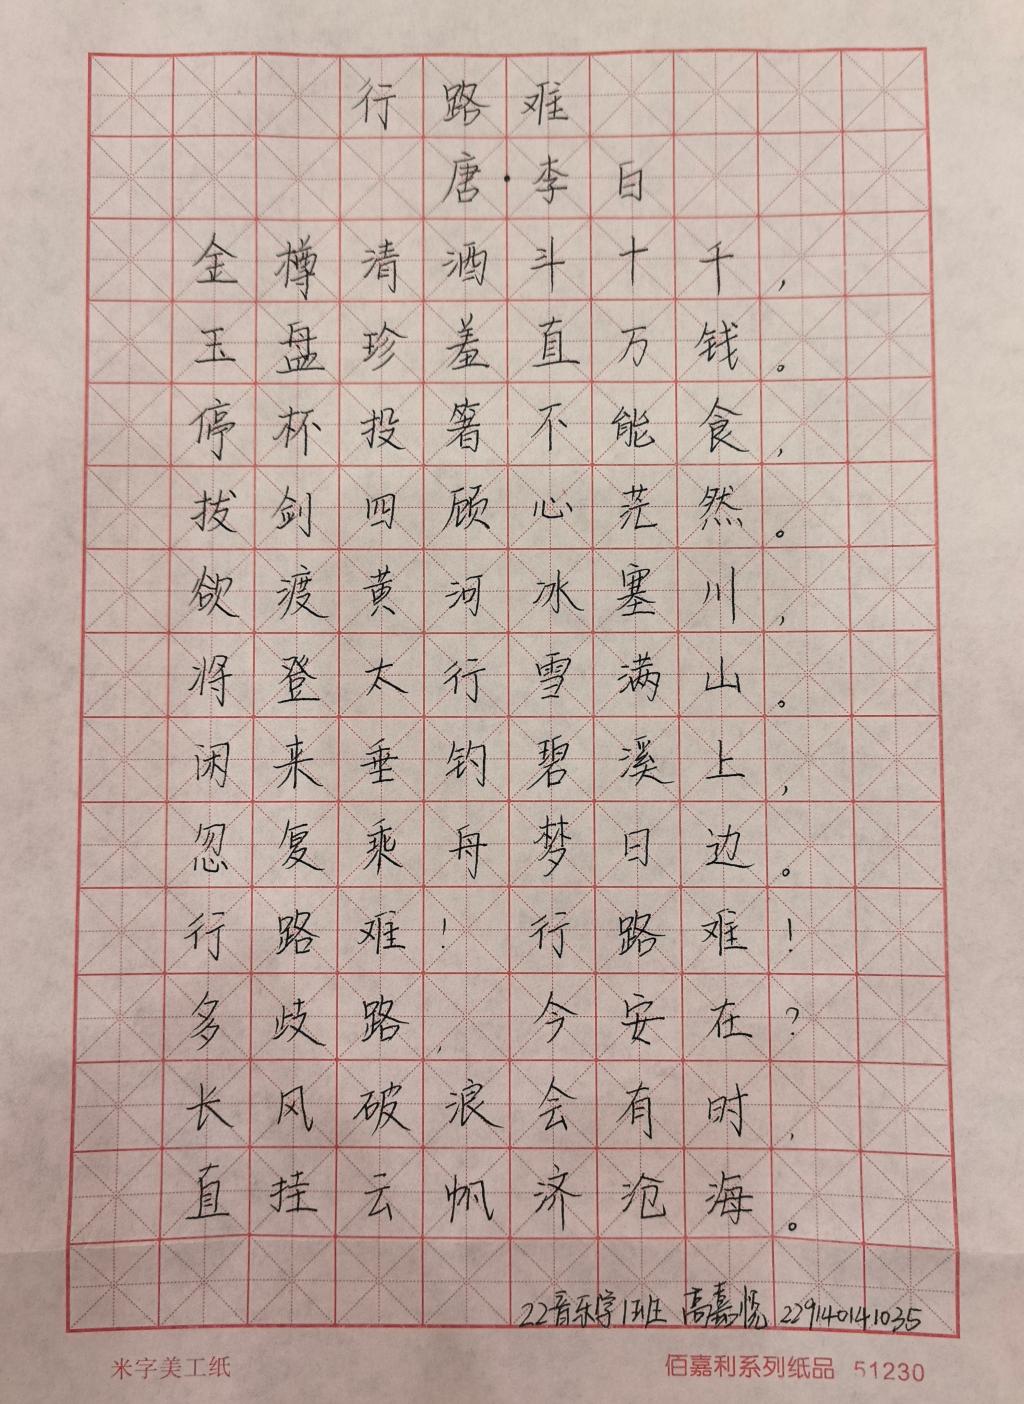 行路难
唐·李白
金樽清酒斗十千，
玉盘珍羞直万钱。
停杯投箸不能食，
拔剑四顾心茫然。
欲渡黄河冰塞川，
将登太行雪满山。
闲来垂钓碧溪上，
忽复乘舟梦日边。
行路难！行路难！
多歧路，今安在？
长风破浪会有时，
直挂云帆济沧海。
22音乐学1班 高嘉悦 229140141035
米字美工纸 佰嘉利系列纸品 51230